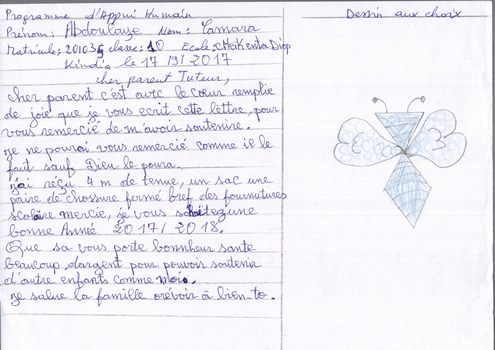 Programme d'Appui Humain
Prénom: Abdoulaye Nom: Camara
Matricule; 201036 classe: 10 Ecole: CheiKAnta Diop
Kindia le 17/9/2017
cher parent Tuteur,
cher parent c'est avec le cœur remplie
de joie que je vous ecrit cette lettre, pour
vous remercié de m'avoir soutenire.
je ne pourai vous remercié comme il le
fait sauf Dieu le poura.
j'ai reçu 4 m de tenue, un sac une
paire de chossure fermé bref des fournutures
scolaire mercie, je vous souhaitez une
bonne Année 2017/2018.
Que sa vous porte bonnheur sante
beaucoup d'argent pour pouvoir soutenir
d'autre enfants comme moi.
je salue la famille orévoir à bien-to.
Dessin aux choix